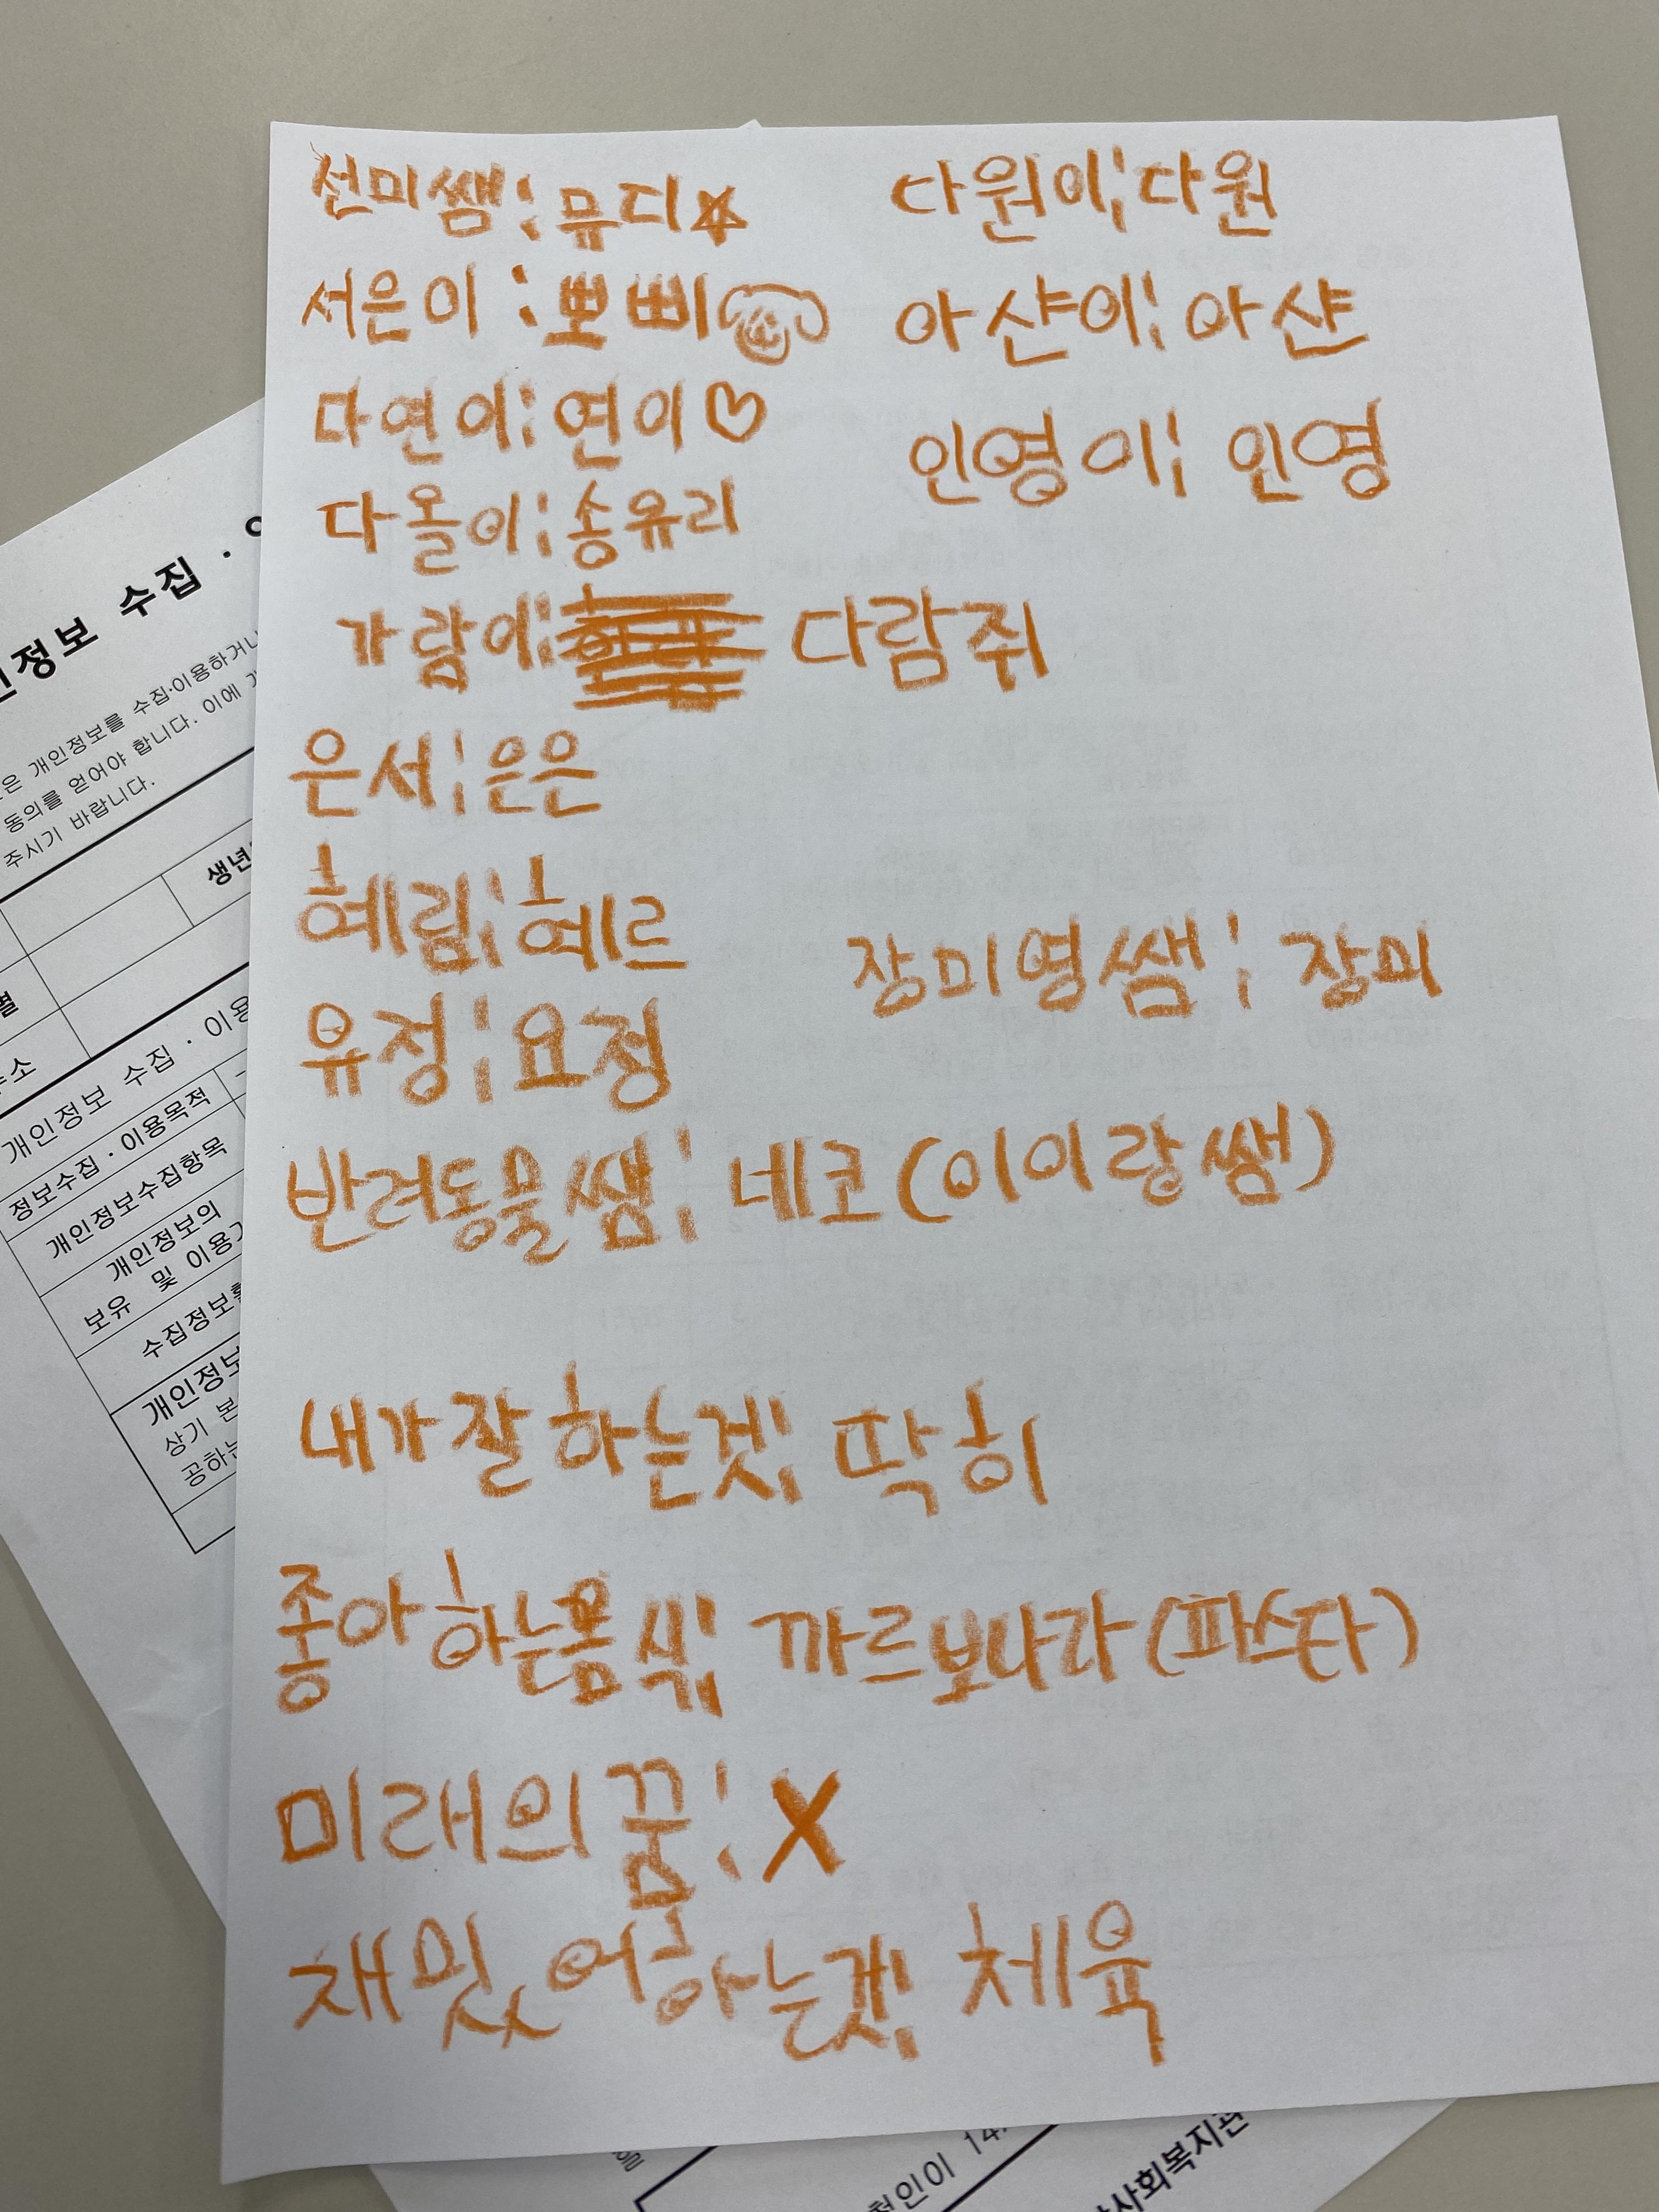 선미쌤: 뮤디☆
서은이: 뽀삐
다연이: 연이♡
다올이: 송유리
가람이: 다람쥐
은서: 은은
혜림: 혜르
유정: 요정
반려동물쌤: 네코(이이랑쌤)
다원이: 다원
아샨이: 아샨
인영이: 인영
장미영쌤: 장미
내가잘하는겟: 딱히
좋아하는음식: 까르보나라(파스타)
미래의꿈: X
채밌어하는겟: 체육
인정보 수집 ·
은 개인정보를 수집·이용하거나
동의를 얻어야 합니다. 이에
주시기 바랍니다.
생년
별
주소
개인정보 수집 · 이용
정보수집 · 이용목적
개인정보수집항목
개인정보의
보유 및 이용
수집정보
개인정보
상기 본
공하는
청인이 14
사회복지관